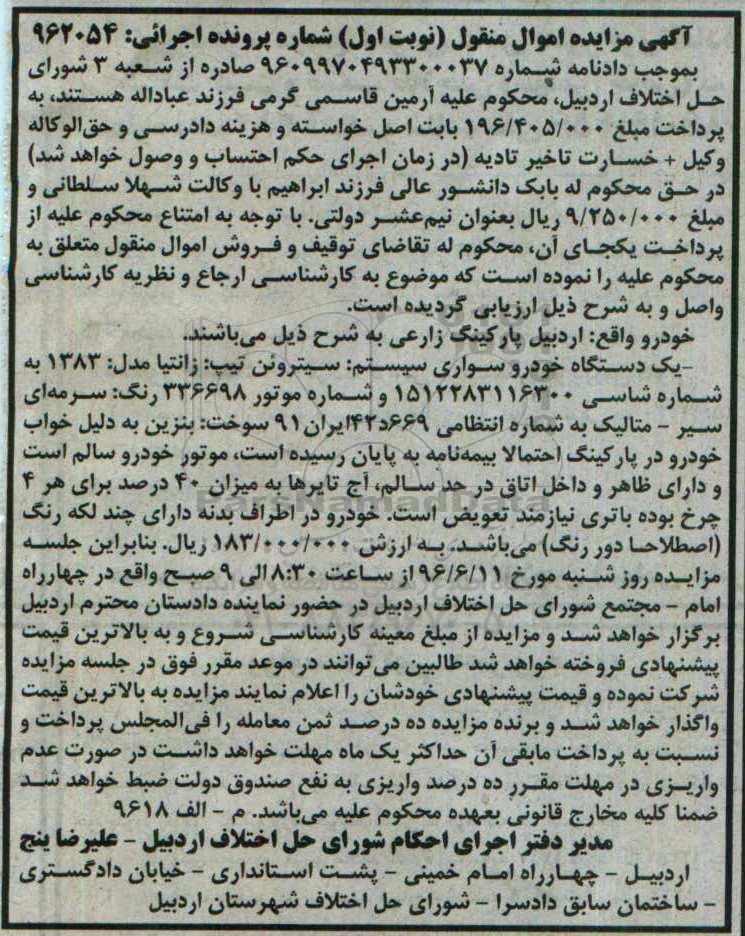 آگهی مزایده اموال منقول (نوبت اول) شماره پرونده اجرائی: ۹۶۲۰۵۴
بموجب دادنامه شماره ۹۶۰۹۹۷۰۴۹۳۳۰۰۰۳۷ صادره از شعبه ۳ شورای
حل اختلاف اردبیل، محکوم علیه آرمین قاسمی گرمی فرزند عباداله هستند، به
پرداخت مبلغ ۱۹۶/۴۰۵/۰۰۰ بابت اصل خواسته و هزینه دادرسی و حق‌الوکاله
وکیل + خسارت تاخیر تادیه (در زمان اجرای حکم احتساب و وصول خواهد شد)
در حق محکوم له بابک دانشور عالی فرزند ابراهیم با وکالت شهلا سلطانی و
مبلغ ۹/۲۵۰/۰۰۰ ریال بعنوان نیم‌عشر دولتی. با توجه به امتناع محکوم علیه از
پرداخت یکجای آن، محکوم له تقاضای توقیف و فروش اموال منقول متعلق به
محکوم علیه را نموده است که موضوع به کارشناسی ارجاع و نظریه کارشناسی
واصل و به شرح ذیل ارزیابی گردیده است.
خودرو واقع: اردبیل پارکینگ زارعی به شرح ذیل می‌باشند.
-یک دستگاه خودرو سواری سیستم: سیتروئن تیپ: زانتیا مدل: ۱۳۸۳ به
شماره شاسی ۱۵۱۲۲۸۳۱۱۶۳۰۰ و شماره موتور ۳۳۶۶۹۸ رنگ: سرمه‌ای
سیر - متالیک به شماره انتظامی ۶۶۹د۴۲ایران۹۱ سوخت: بنزین به دلیل خواب
خودرو در پارکینگ احتمالا بیمه‌نامه به پایان رسیده است، موتور خودرو سالم است
و دارای ظاهر و داخل اتاق در حد سالم، آج تایرها به میزان ۴۰ درصد برای هر ۴
چرخ بوده باتری نیازمند تعویض است. خودرو در اطراف بدنه دارای چند لکه رنگ
(اصطلاحا دور رنگ) می‌باشد. به ارزش ۱۸۳/۰۰۰/۰۰۰ ریال. بنابراین جلسه
مزایده روز شنبه مورخ ۹۶/۶/۱۱ از ساعت ۸:۳۰ الی ۹ صبح واقع در چهارراه
امام - مجتمع شورای حل اختلاف اردبیل در حضور نماینده دادستان محترم اردبیل
برگزار خواهد شد و مزایده از مبلغ معینه کارشناسی شروع و به بالاترین قیمت
پیشنهادی فروخته خواهد شد طالبین می‌توانند در موعد مقرر فوق در جلسه مزایده
شرکت نموده و قیمت پیشنهادی خودشان را اعلام نمایند مزایده به بالاترین قیمت
واگذار خواهد شد و برنده مزایده ده درصد ثمن معامله را فی‌المجلس پرداخت و
نسبت به پرداخت مابقی آن حداکثر یک ماه مهلت خواهد داشت در صورت عدم
واریزی در مهلت مقرر ده درصد واریزی به نفع صندوق دولت ضبط خواهد شد
ضمنا کلیه مخارج قانونی بعهده محکوم علیه می‌باشد. م - الف ۹۶۱۸
مدیر دفتر اجرای احکام شورای حل اختلاف اردبیل - علیرضا ینج
اردبیل - چهارراه امام خمینی - پشت استانداری - خیابان دادگستری
- ساختمان سابق دادسرا - شورای حل اختلاف شهرستان اردبیل